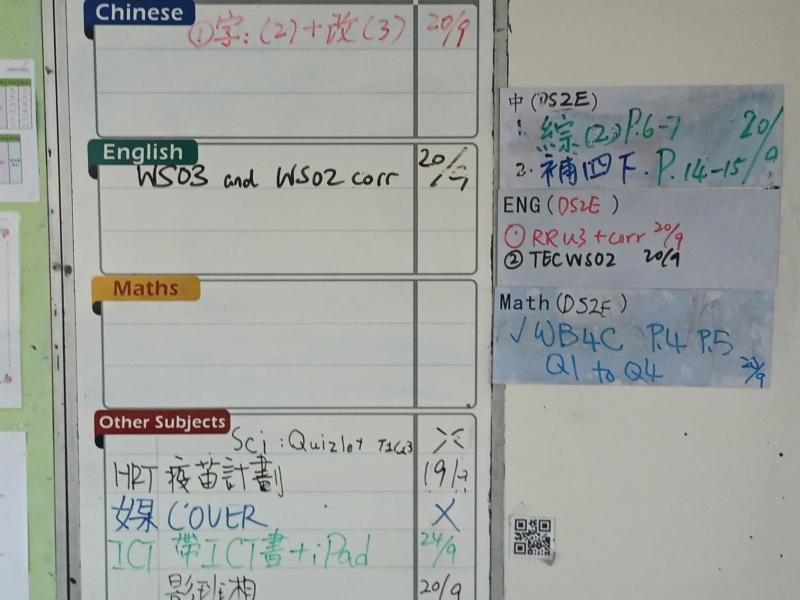 Chinese
①字:(2)+改(3) 20/9
English
WS03 and WS02 corr 20/9
Maths
Other Subjects
Sci : Quizlet T1Q3
HRT 疫苗計劃 19/9
媒 COVER X
ICT 帶ICT書+iPad 24/9
影班相 20/9
中(DS2E)
1. 綜(2)P.6-7 20/9
2. 補四下. P.14-15
ENG(DS2E)
① RR U3 + corr 20/9
② TEC WS02 20/9
Math(DS2E)
✓ WB4C P.4 P.5
Q1 to Q4 20/9